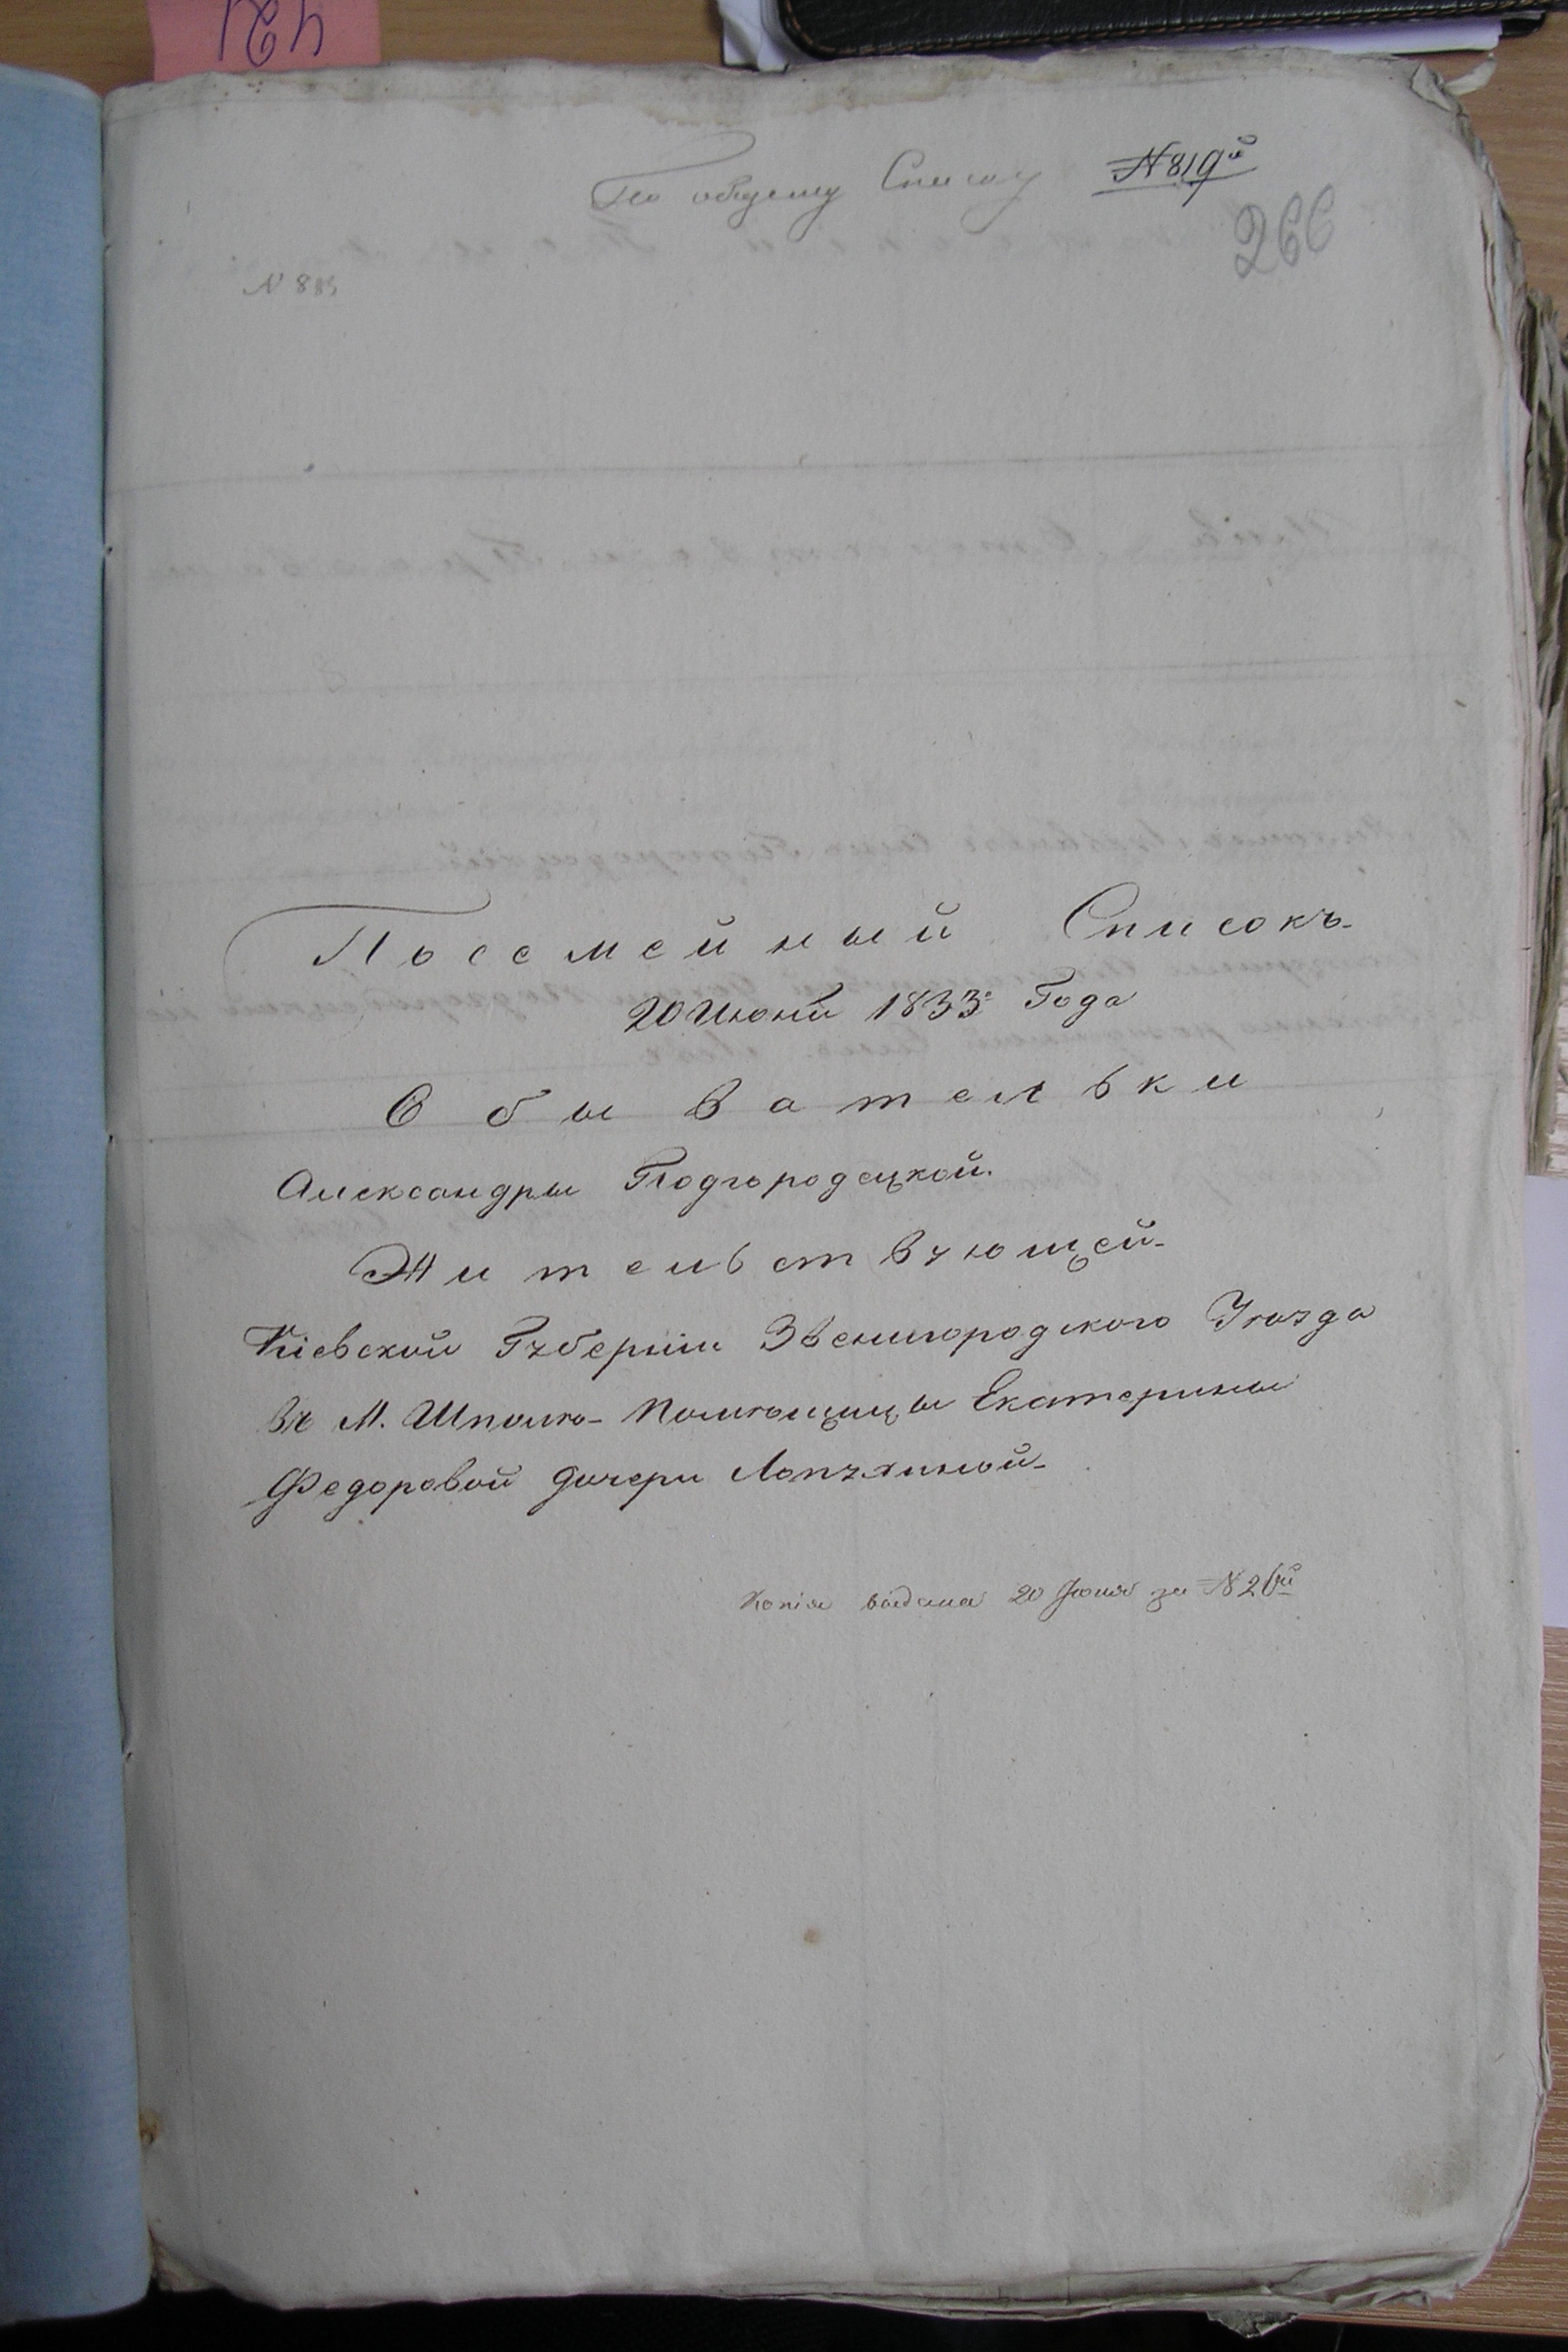 По общему Списку №819й
266
Посемейный Списокъ
20 Июня 1833го Года
Обывательки
Александры Подгородецкой.
Жительствующей
Кіевской Губерніи Звенигородского Уѣзда
въ М. Шполѣ Помѣщицы Екатерины
Федоровой дочери Лопухиной
Копія выдана 20 Июня за №26й